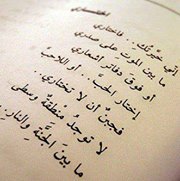 إني خيّرتُك.. فاختاري
ما بين الموت على صدري
أو فوق دفاتر أشعاري
إختاري الحبَّ.. أو اللاحبَّ
فجبنٌ أن لا تختاري.
لا توجدُ منطقةٌ وسطى
ما بين الجنّة والنار..